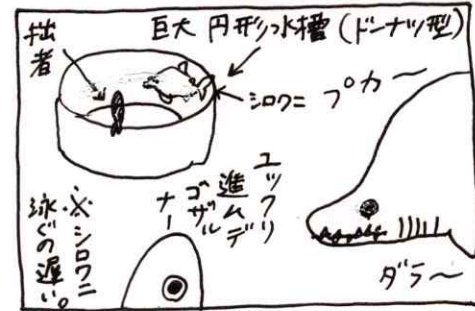 巨大 円形水槽(ドーナツ型)
拙者
シロワニ
プカ〜
ユックリ
進ムデ
ゴザル
ナー
ダラ〜
※シロワニ
泳ぐの遅い。